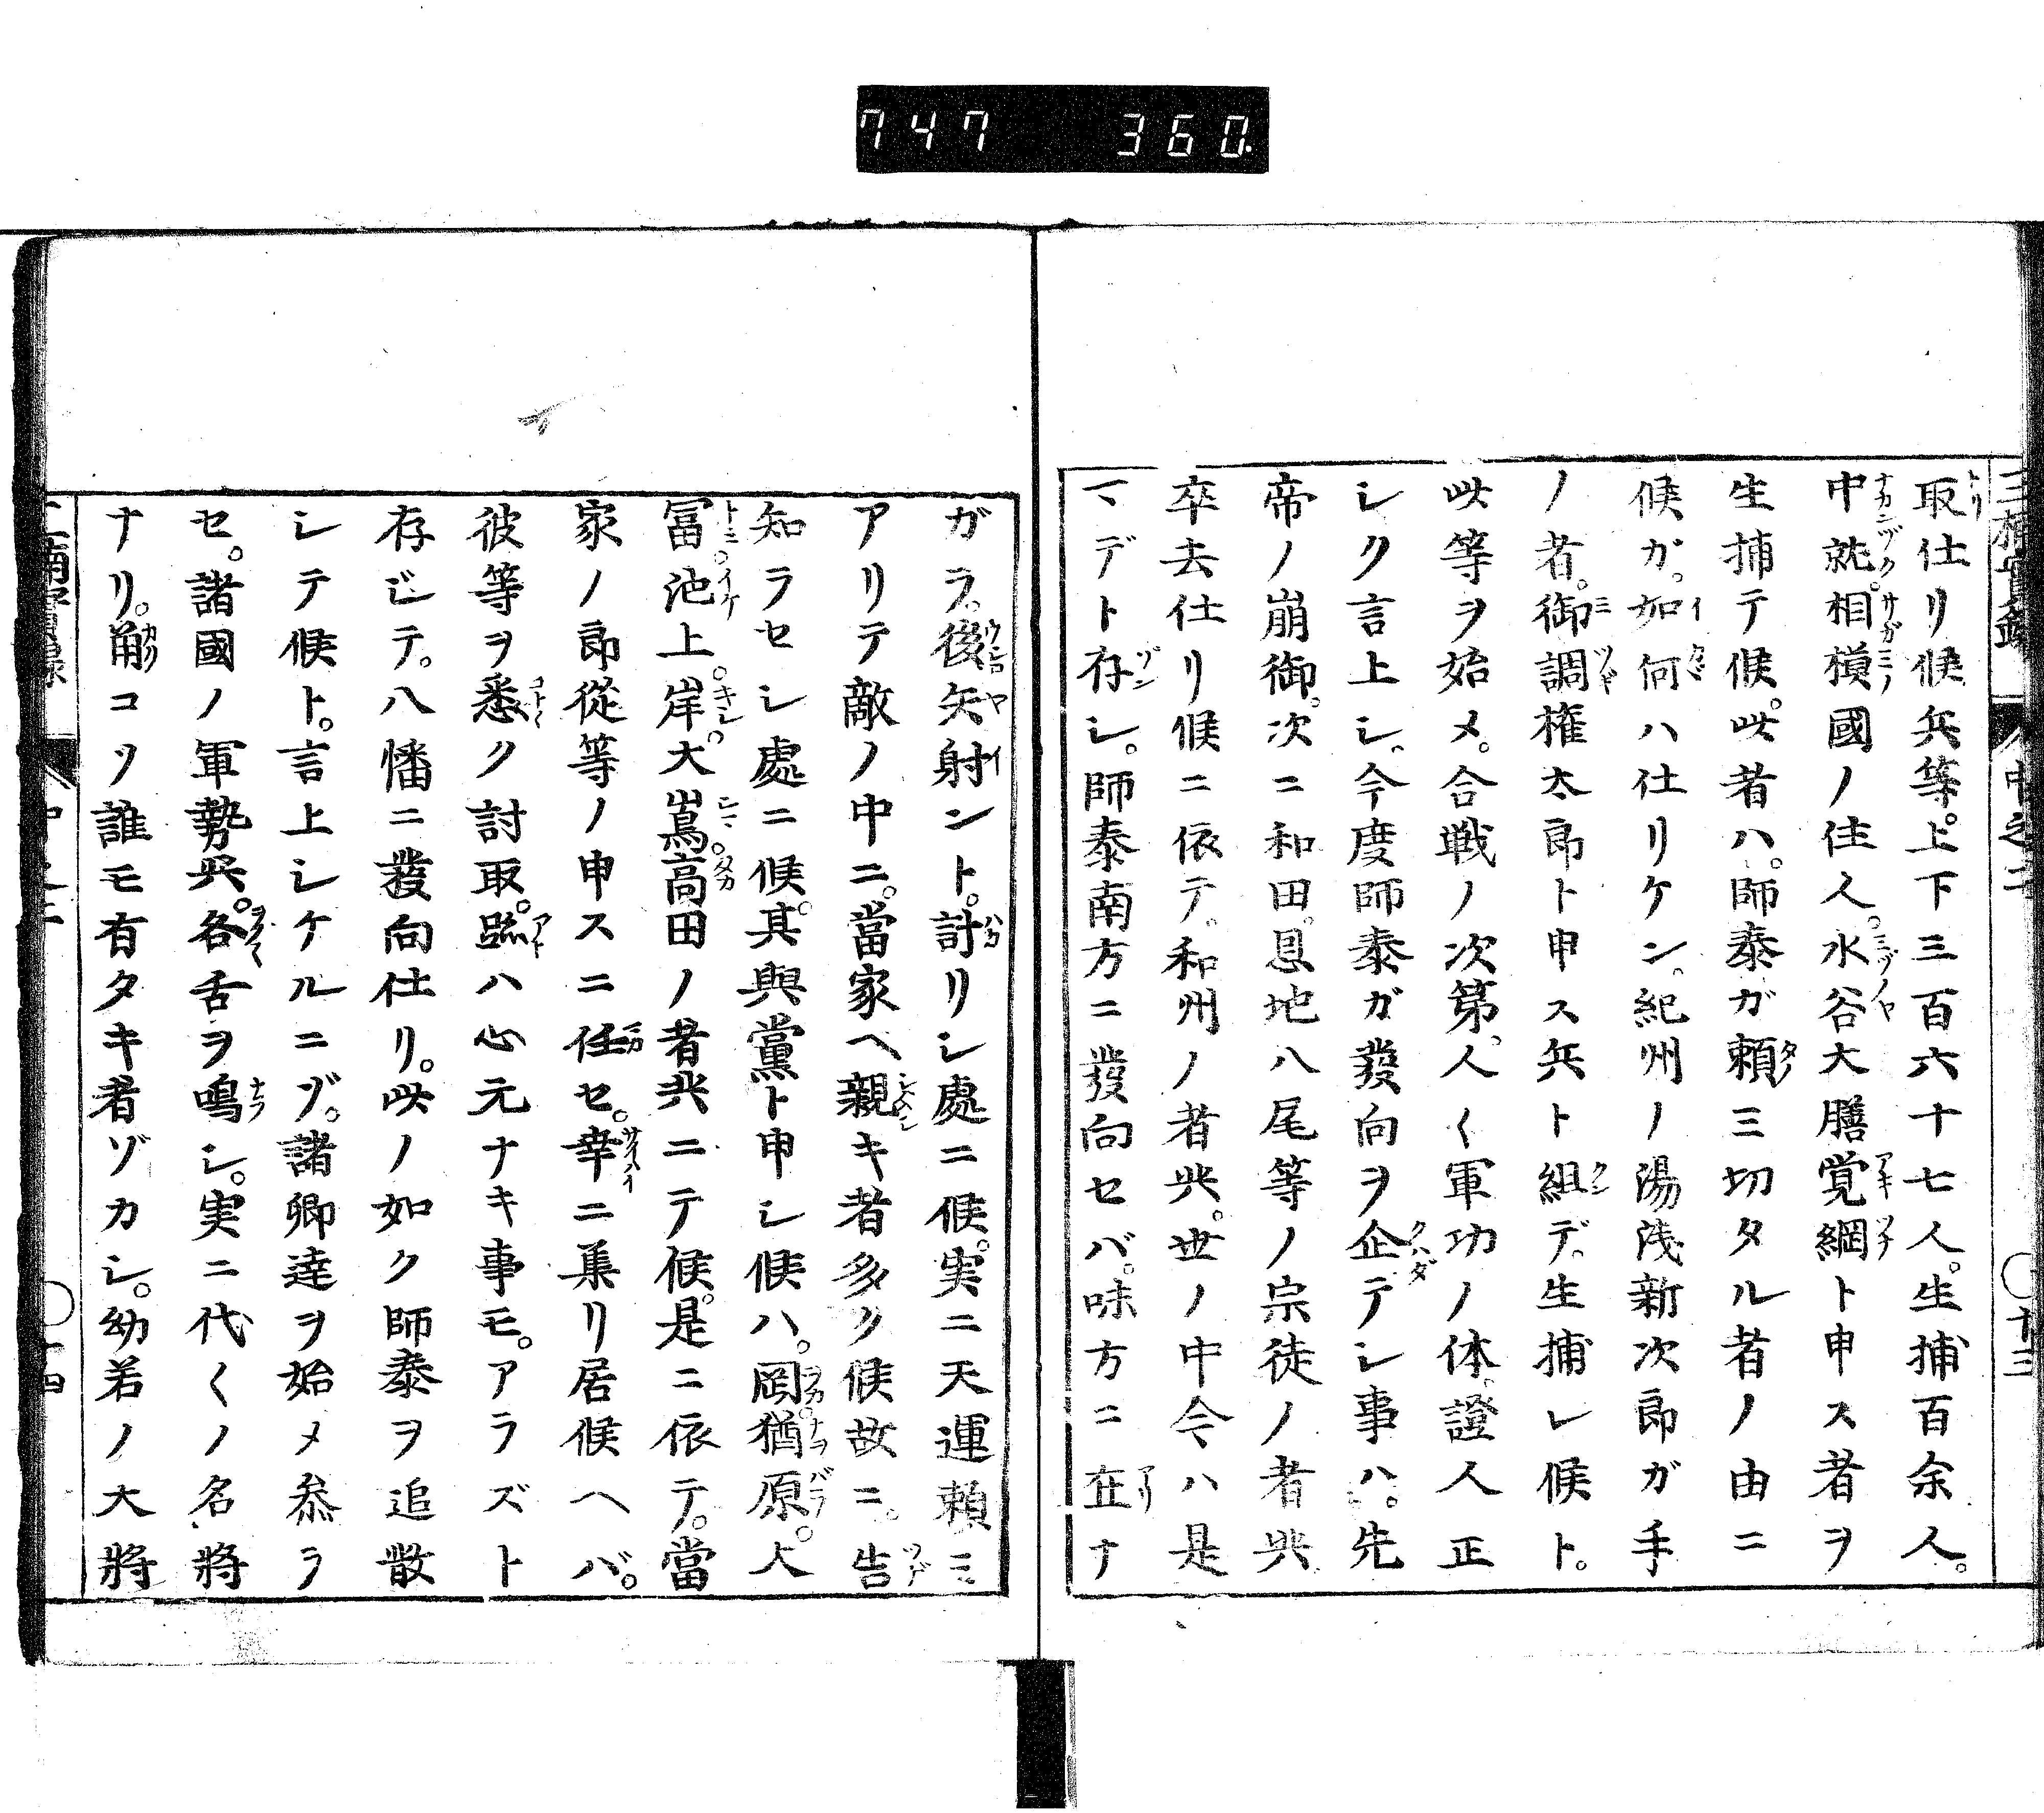 747 360.
取仕リ候兵等。上下三百六十七人。生捕百余人。
中就。相模國ノ住人。水谷大膳覚綱ト申ス者ヲ
生捕テ候。此者ハ。師泰ガ頼三切タル者ノ由ニ
候ガ。如何ハ仕リケン。紀州ノ湯浅新次郎ガ手
ノ者。御調権太郎ト申ス兵ト組デ。生捕レ候ト。
此等ヲ始メ。合戦ノ次第。人〱軍功ノ体、證人正
シク言上シ、今度師泰ガ發向ヲ企テシ事ハ。先
帝ノ崩御。次ニ和田。恩地八尾等ノ宗徒ノ者共
卒去仕リ候ニ依テ。和州ノ者共。世ノ中今ハ是
マデト存シ。師泰南方ニ發向セバ。味方ニ在ナ
ガラ。後矢射ント。計リシ處ニ候。実ニ天運頼ミ
アリテ敵ノ中ニ。當家ヘ親キ者多ク候故ニ。告
知ラセシ處ニ候。其與黨ト申シ候ハ。岡。猶原。大
冨。池上。岸。大嶌。高田ノ者共ニテ候。是ニ依テ。當
家ノ郎從等ノ申スニ任セ。幸ニ集リ居候ヘバ。
彼等ヲ悉ク討取。跡ハ心元ナキ事モ。アラズト
存ジテ。八幡ニ發向仕リ。此ノ如ク師泰ヲ追散
シテ候ト。言上シケルニゾ。諸卿達ヲ始メ叅ラ
セ。諸國ノ軍勢共。各舌ヲ鳴シ。実ニ代〱ノ名將
ナリ。角コソ誰モ有タキ者ゾカシ。幼若ノ大將